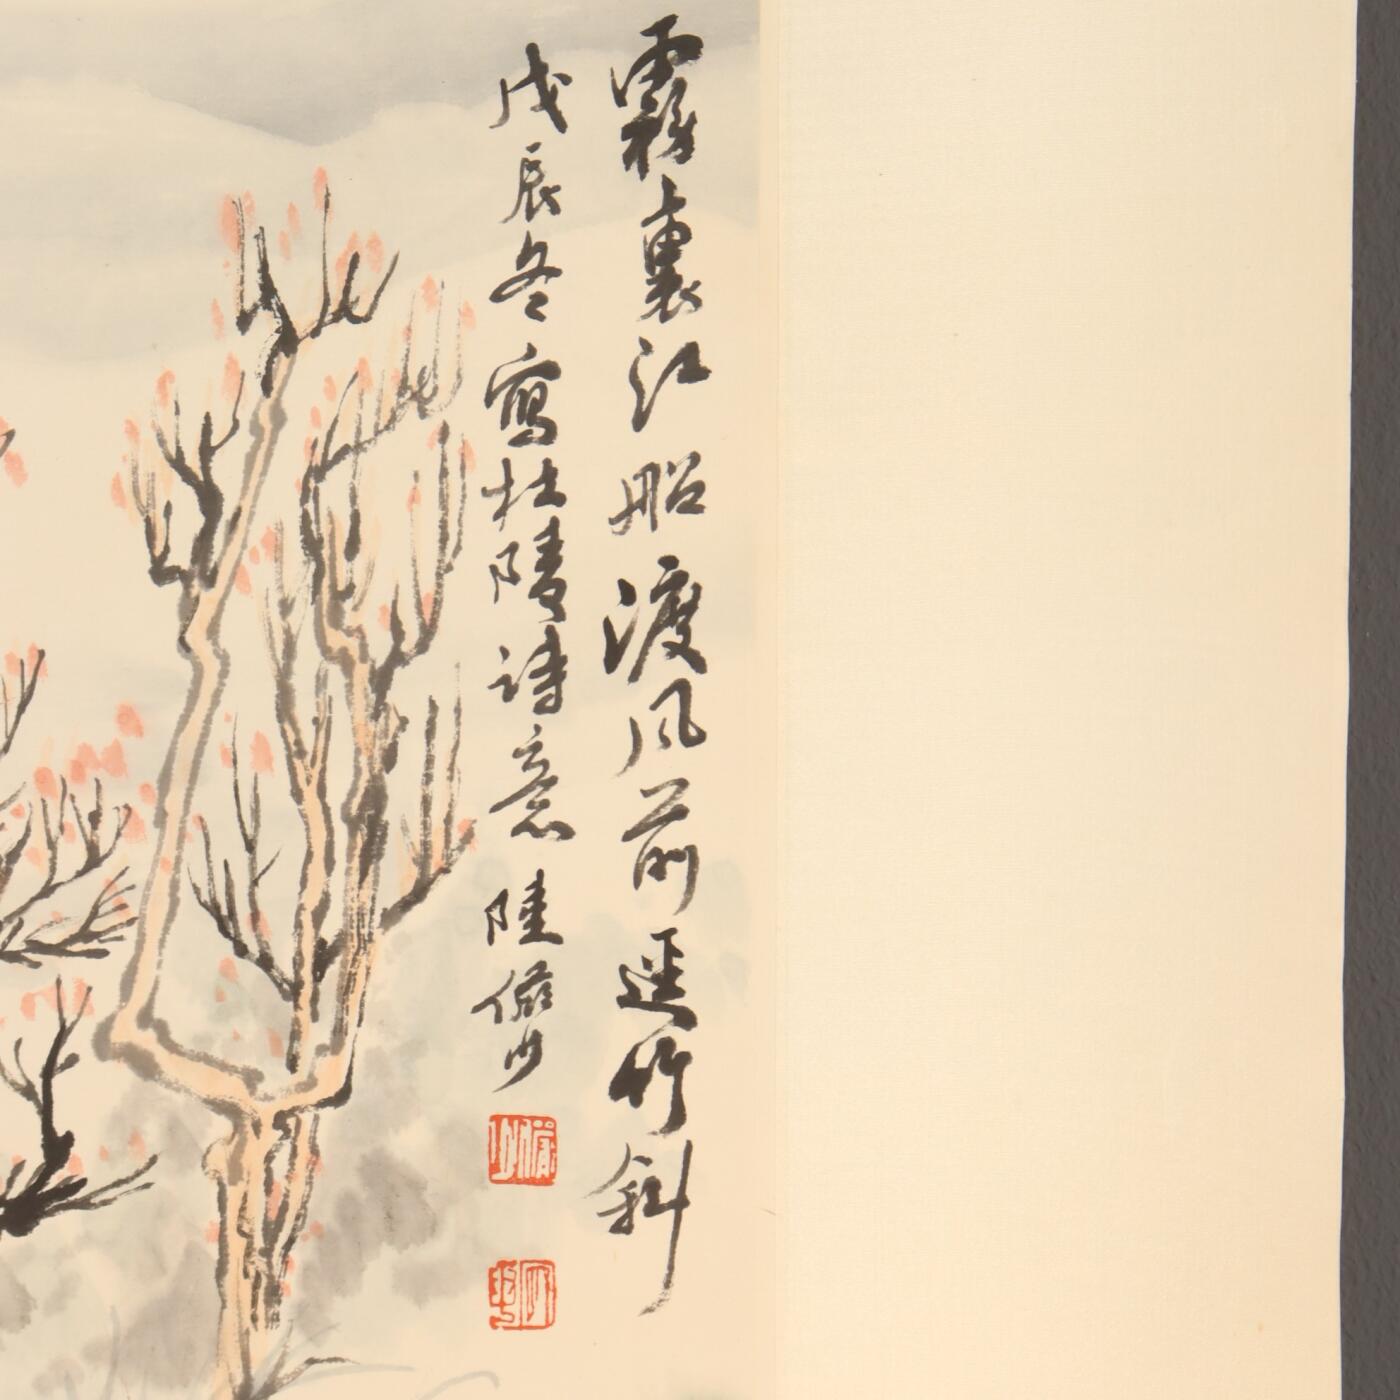 霧裏江船渡風前逕竹斜
戊辰冬寫杜陵詩意陸儼少